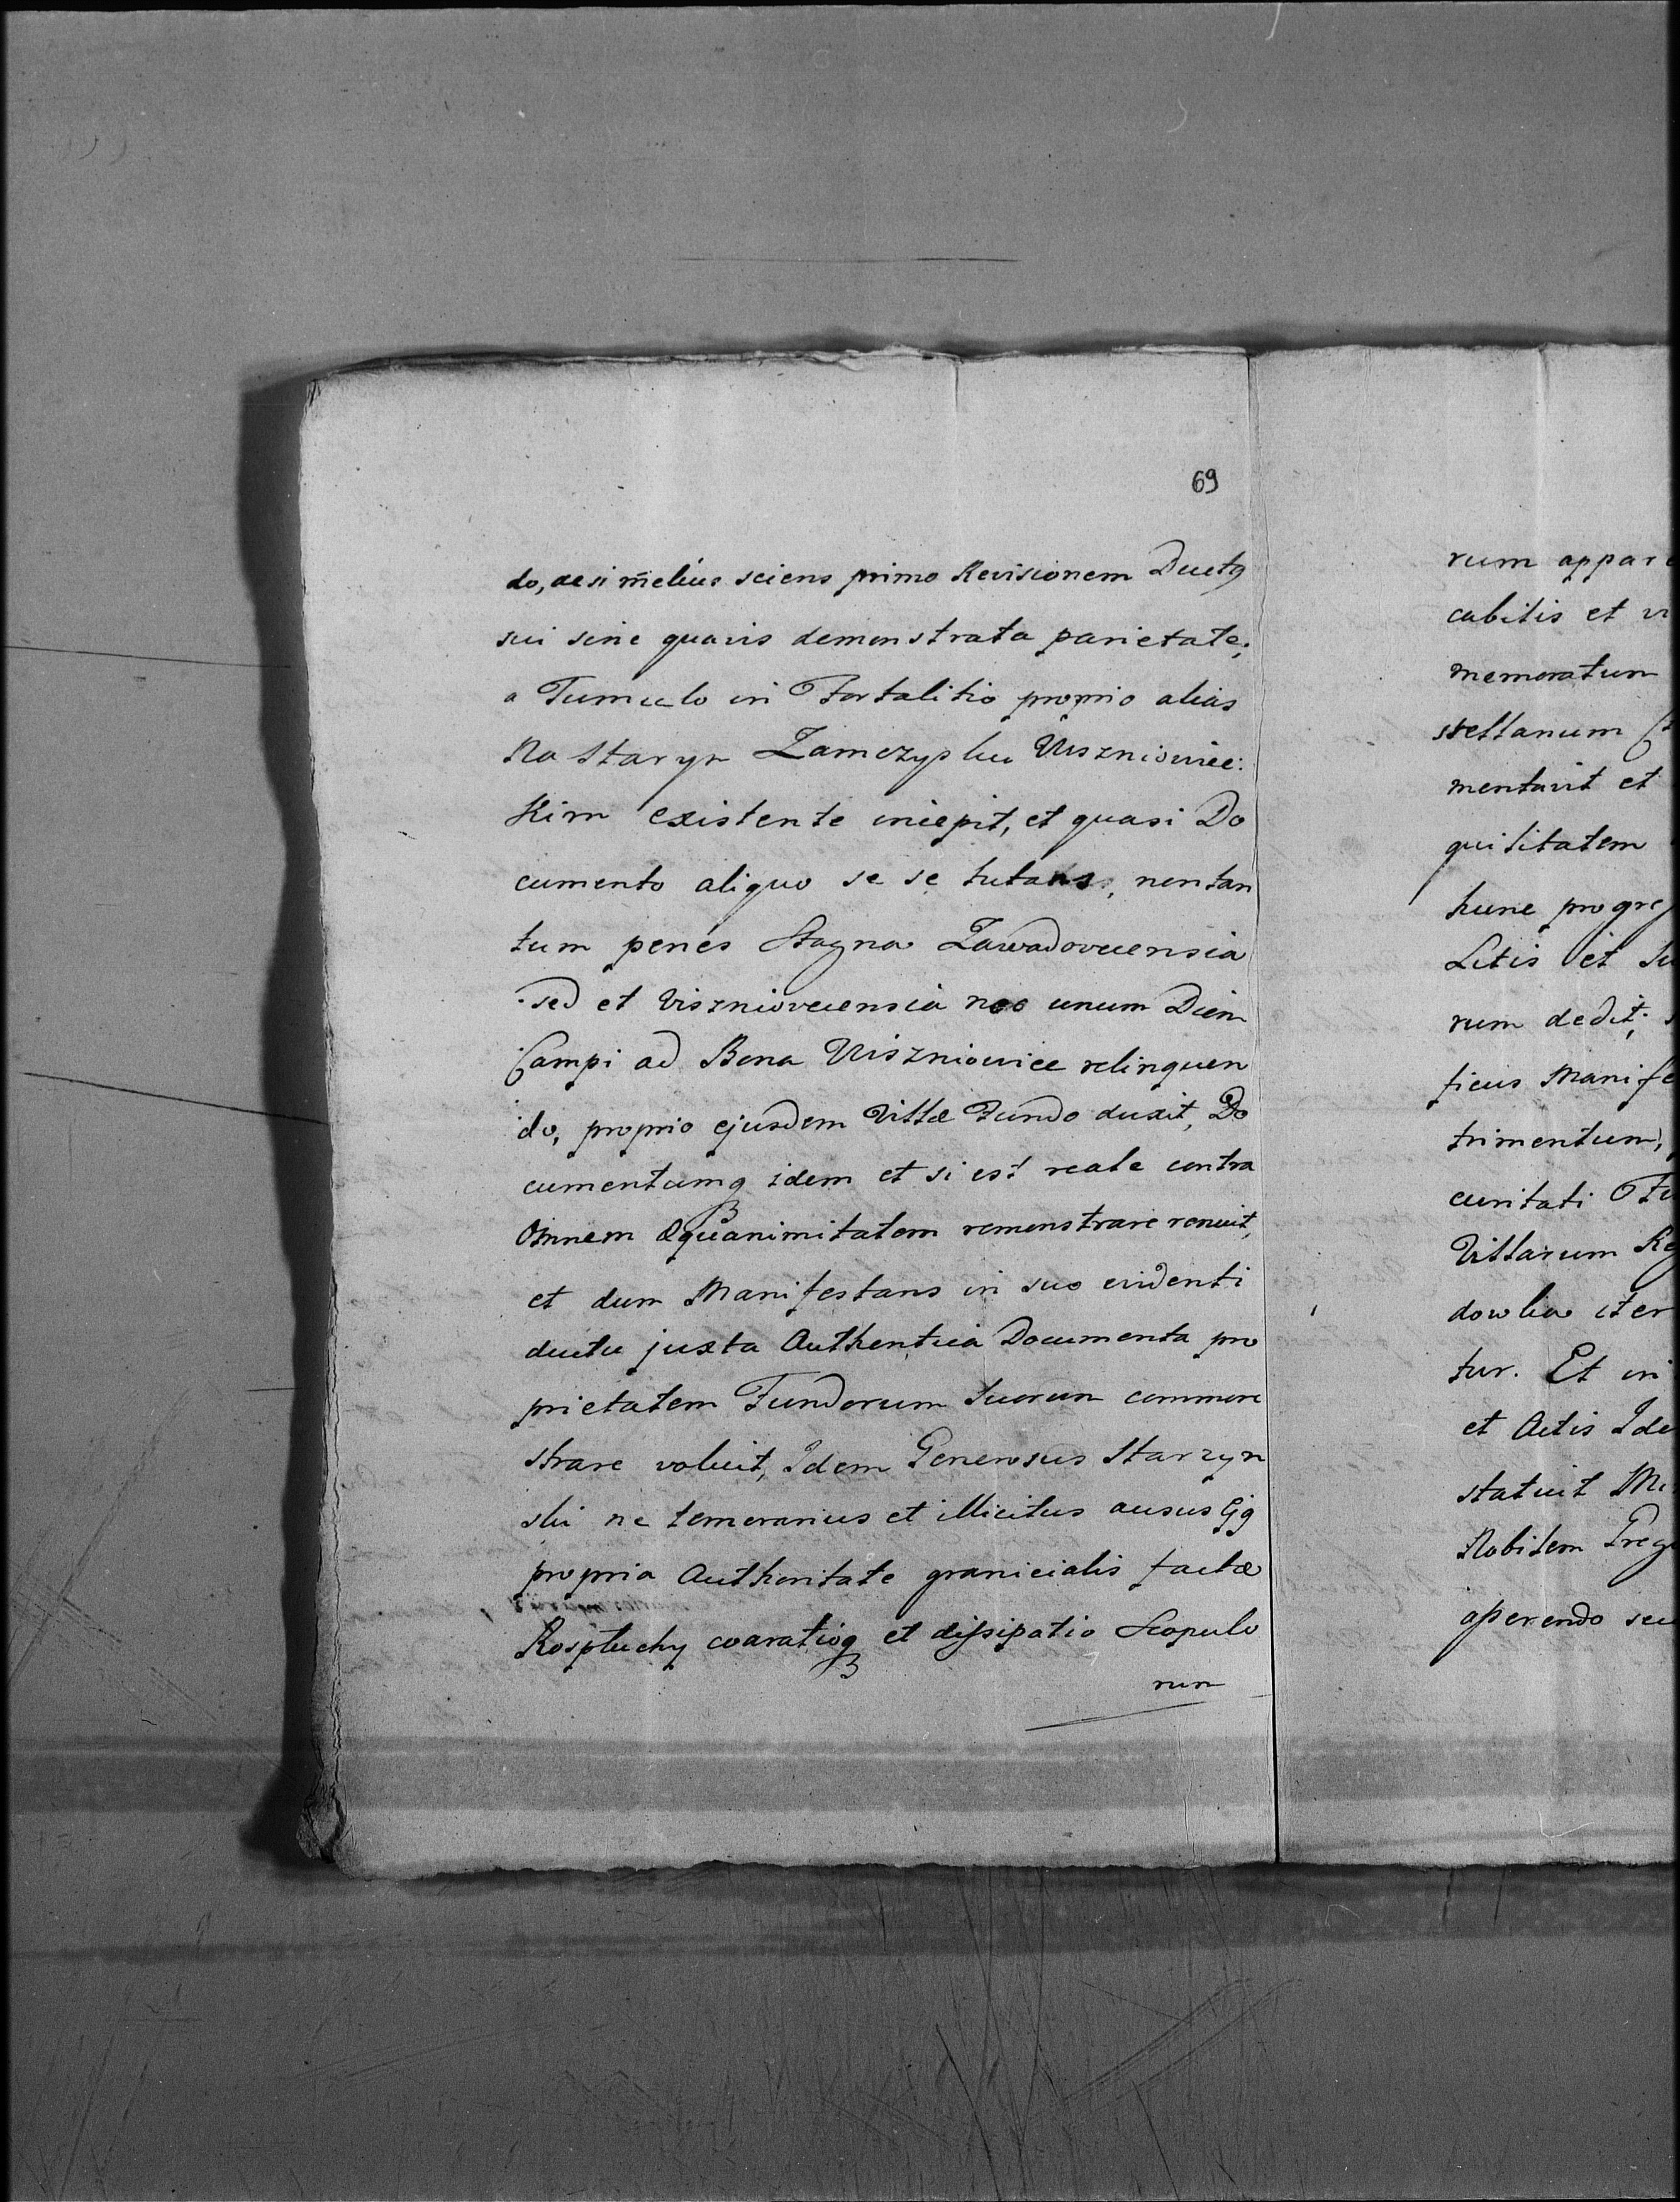 69
do, ac si melius sciens primo Revisionem Ductq
sui sine quavis demonstrata parietate;
a Tumulo in Fortalitio proprio alias
Na Starym Zamczysku Wiszniowiec:
Kim existente incepit, et quasi Do
cumento aliquo se se tutans, nontan
tum penes Stagna Zawadovecensia
sed et Viszniovecensia nec unum Diem
Campi ad Bona Wiszniowiec relinquen
do, proprio ejusdem Villæ Fundo duxit, Do
cumentumq idem et si est reale contra
Omnem Æquanimitatem remonstrare renuit,
et dum Manifestans in suo evidenti
ductu juxta Authentica Documenta pro
prietatem Fundorum suorum commone
strare voluit, Idem Generosus Starzyn
ski ne temerarius et illicitus ausus Ejg
propria Authoritate granicialis factæ
Rospluchy coaratioq et dissipatio Scopulo
rum
rum appar
cabilis et vi
memoratum
stellanum
mentavit et
quilitatem
hunc progre
Litis et Su
rum dedit;
ficus Manife
trimentum,
curitati Fu
Villarum Re
dowka iter
tur. Et in
et Actis Ide
statuit Mi
Nobilem Greg
asserendo seu